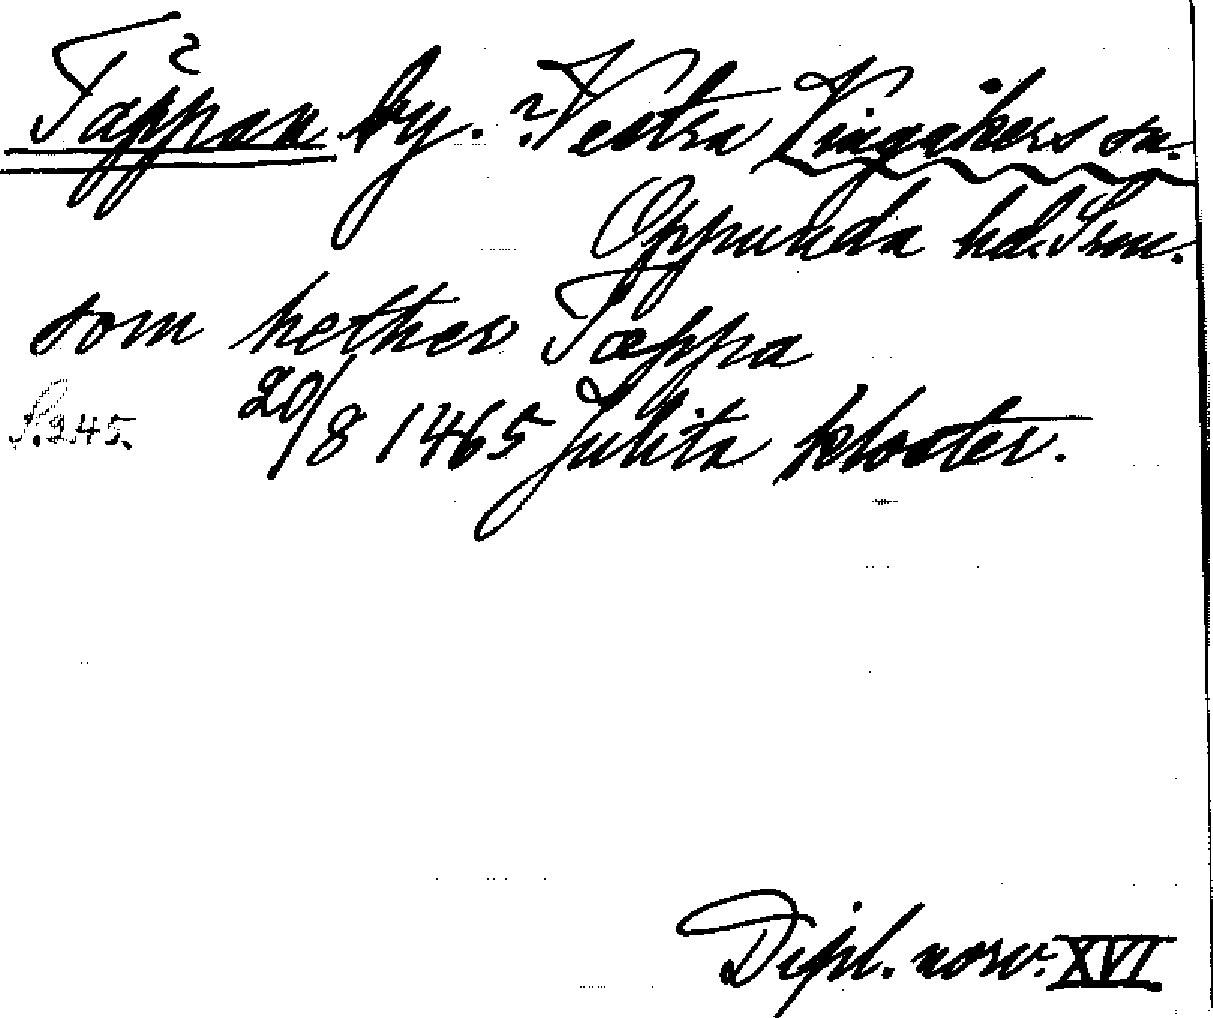 Täppan by. ? Vestra Vingåkers sn.
Oppunda hd. Srm.
som hether Tæppa
S. 245. 20/8 1465 Julita kloster.
Dipl. norv. XVI